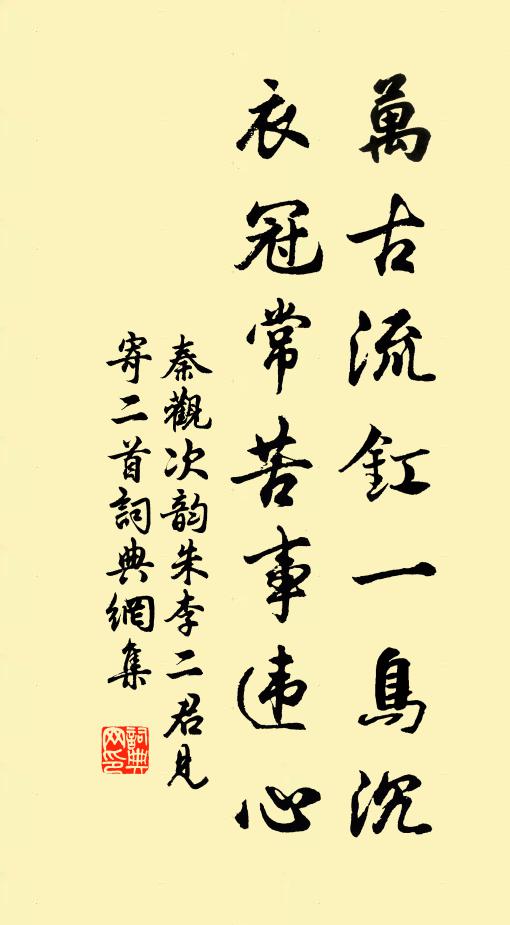 萬古流釭一鳥沉
衣冠常苦事违心
秦觀次韵朱李二君見
寄二首詞典網集
詞典网印